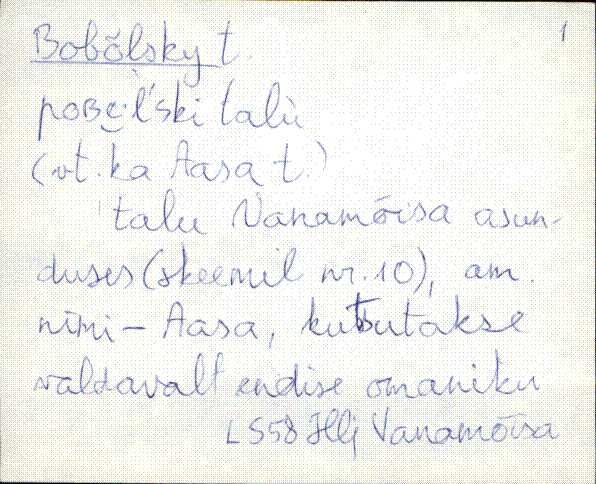 1
Bobõlsky t.
poʙe̮·l'ski talù
(vt. ka Aasa t.)
talu Vanamõisa asun-
duses (skeemil nr. 10), am.
nimi – Aasa, kutsutakse
valdavalt endise omaniku
LS58 Hlj Vanamõisa